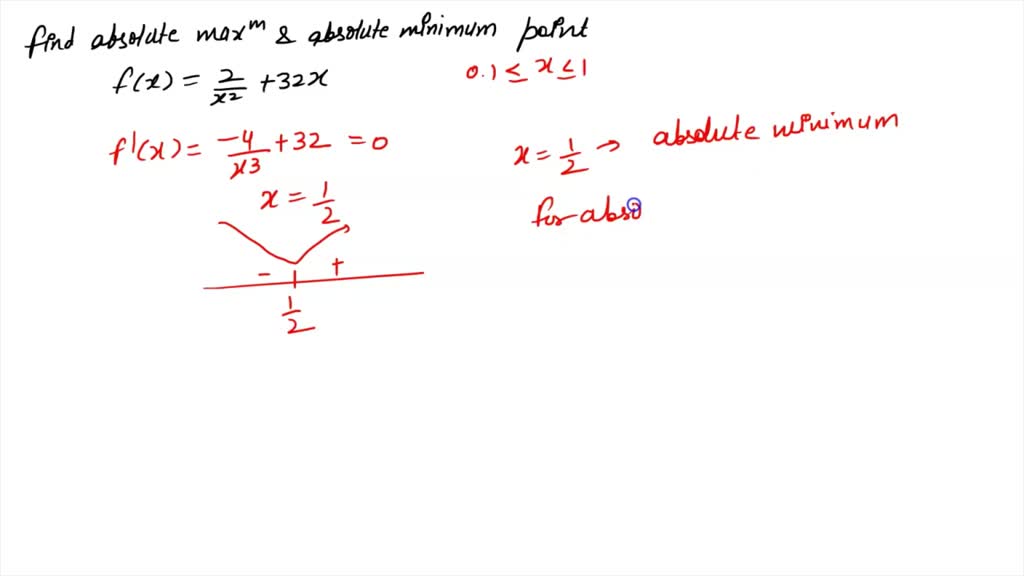 find absolute maxᵐ & absolute minimum point
f(x) = 2/x2 + 32x
0.1 ≤ x ≤ 1
f'(x) = -4/x3 + 32 = 0
x = 1/2
- +
1/2
x = 1/2 → absolute minimum
for abso